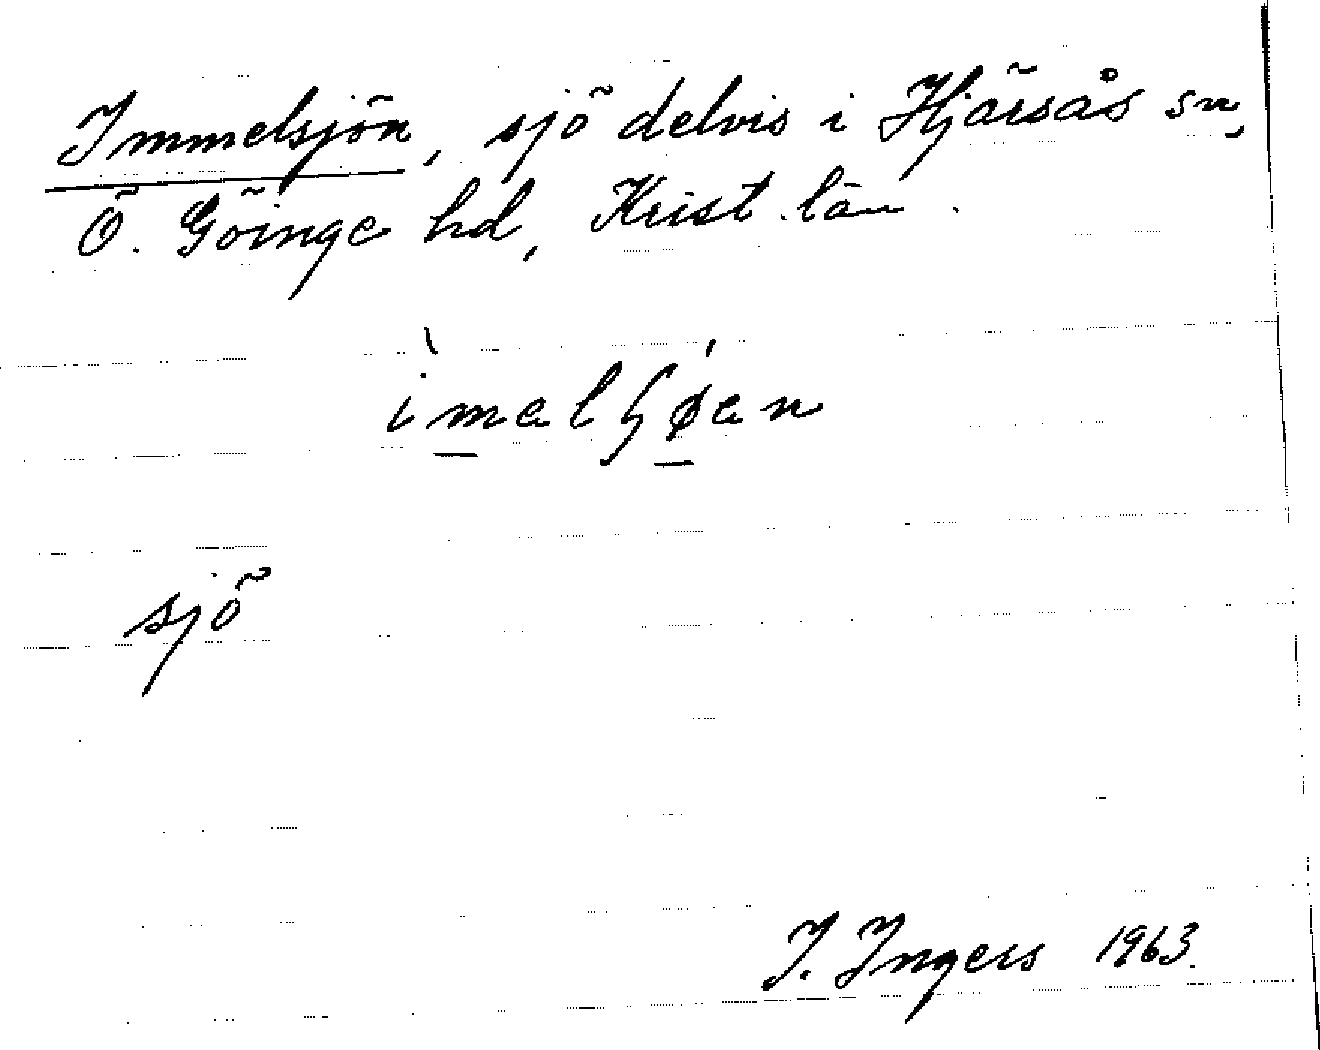 Immelsjön, sjö delvis i Hjärsås sn,
Ö. Göinge hd, Krist. län.
ìməlʃǿən
sjö
I. Ingers 1963.